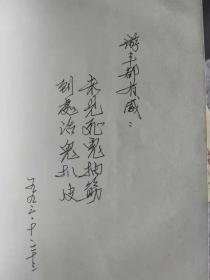 游丰都有感：
未见死鬼抽筋
到处活鬼扒皮
一九九三·十·二十三